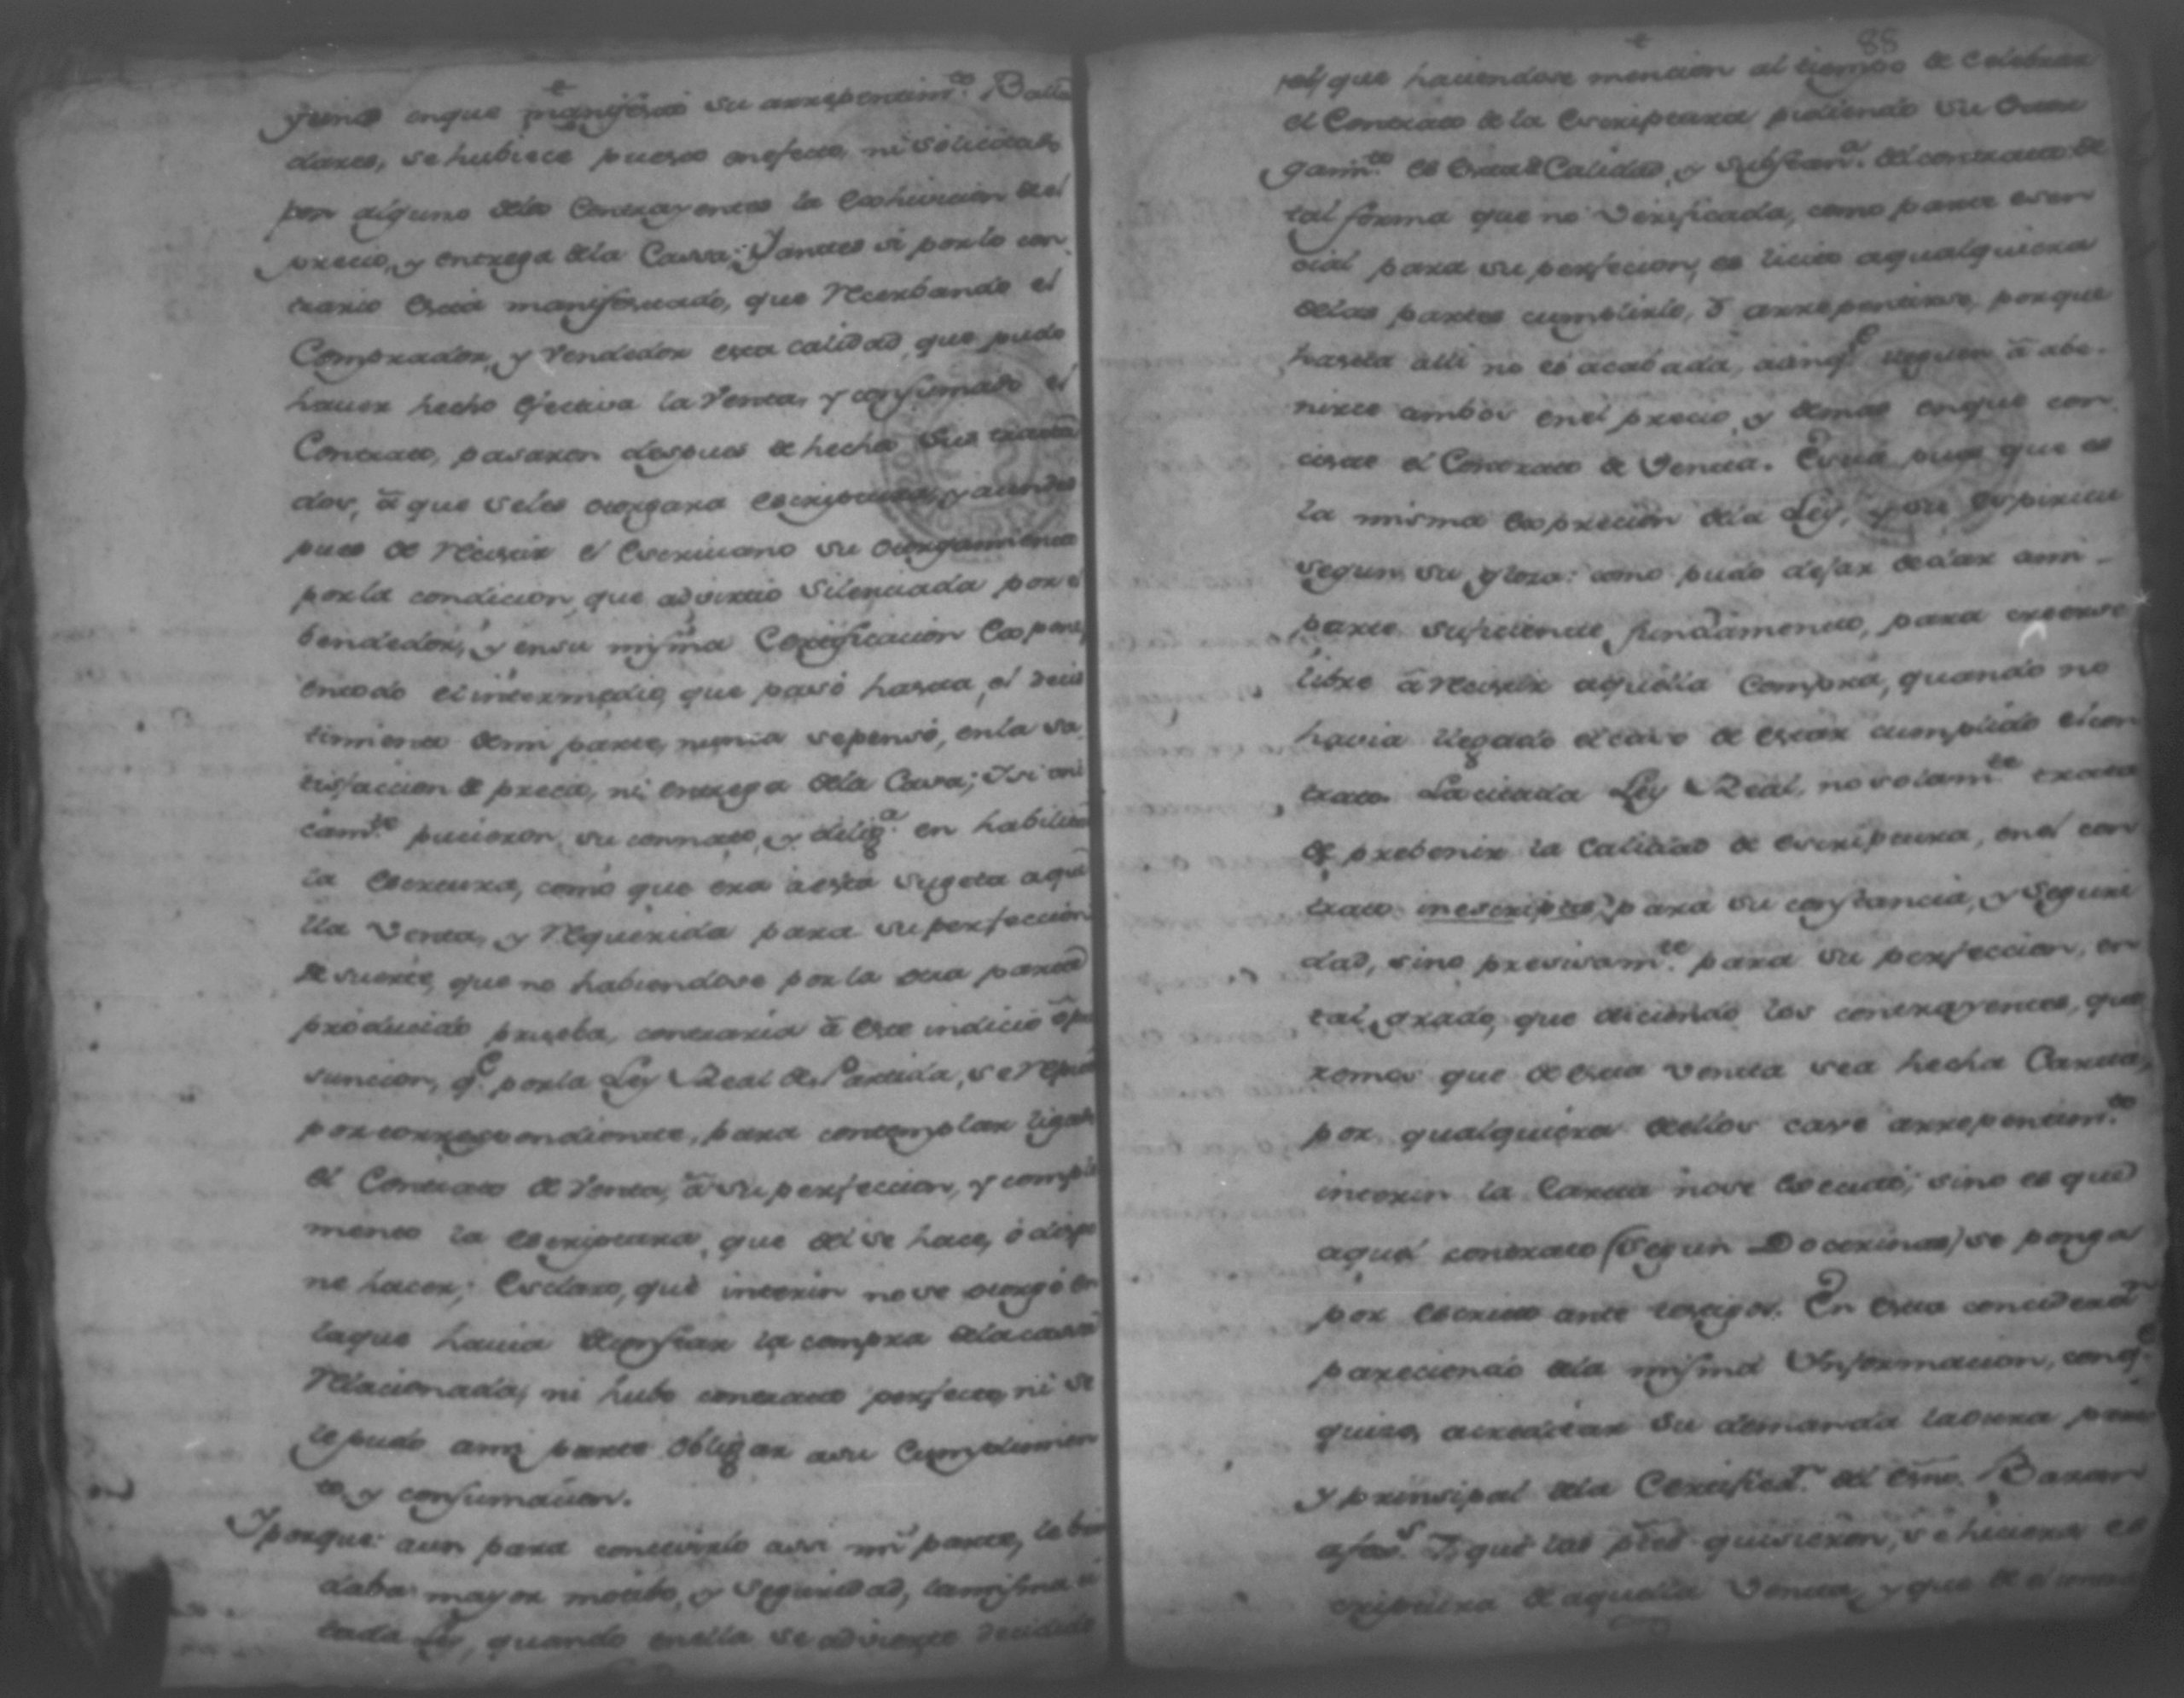 yuno enque manifestó su arrepentim.to Balla
dares, se hubiece puesto enefecto, ni solicitado
por alguno delos Contrayentes la Exhivicion del
precio, y entrega dela Cassa; Y antes si porlo con
trario está manifestado, que recerbando el
Comprador, y Vendedor esta calidad, que pudo
hauer hecho efectiva la Venta, y confumado el
Contrato, pasaron despues de hecho sus tratta
dos, á que seles otorgara Escriptura, y
pues de resistir el Escriuano su otorgamiento
porla condicion, que advirtió silenciada por el
bendedor, y ensu misma Certificacion Expone,
entodo el intermedio, que pasó hasta el desis
timiento demi parte, nunca sepensó, enla sa
tisfaccion de precio, ni entrega dela Casa; Y si uni
cam.te pucieron, su connato, y dilig.a en habilitar
la Escritura, como que era á esta sugeta aque
lla Venta, y requerida para su perfeccion
de suerte, que no habiendose por la otra parte
producido prueba, contraria á este indicio ó pre
suncion, q.e porla Ley Real de Partida, se reputa
por correspondiente, para contemplar ligado
el Contrato de Venta, á su perfeccion, y compli
mento la escriptura, que del se hace, ó dispo
ne hacer; Esclaro, que interin nose otorgó en
laque hauia deconstar la compra dela casa
relacionada, ni hubo contrato perfecto, ni se
le pudo ami parte obligar asu Cumplimien
to, y confumacion.
Y porque: aun para concevirlo assi mi parte, le brin
daba mayor motibo, y seguridad, lamisma ci
tada Ley, quando enella se advierte decidido
88
que haciendose mencion al tiempo de celebrar
el Contrato de la Escriptura pidiendo su Otor
gam.to es esta Calidad, y substan.a del contrato de
tal forma que no Verificada, como parte esen
cial para su perfecion, es licito aqualquiera
delas partes cumplirlo, ó arrepentirse, porque
hasta alli no es acabada, aunq.e lleguen á abe-
nirce ambos enel precio, y demas enque con
ciste el Contrato de Venta. Esta pues que es
la misma Exprecion dela Ley, y su Espiritu
segun su gloza: como pudo dejar dedar ami-
parte suficiente fundamento, para creerse
libre á resistir aquella Compra, quando no
havia llegado elcaso de estar cumplido elcon
trato. Lacitada Ley Real, no solam.te trata
de prebenir la Calidad de Escriptura, enel con
trato inescriptis, para su constancia, y seguri
dad, sino precisam.te para su perfeccion, en
tal grado, que diciendo los contrayentes, que
remos que de esta venta sea hecha Carta,
por qualquiera dellos cave arrepentim.to
interin la Carta nose Escusó; sino es que
aquel contrato (segun Doctrinas) se ponga
por escrito ante testigos. En esta considerac.n
pareciendo dela misma Informacion, conq.e
quizo, acreditar su demanda laotra parte
y prinsipal dela Certificac.n del Esno. Bazan
afox.s Y, que las ptes quisieron, se hiciera es
criptura de aquella Venta, y que de el